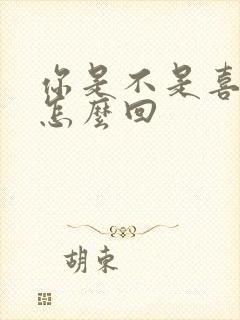 你是不是喜
怎麼回
胡束